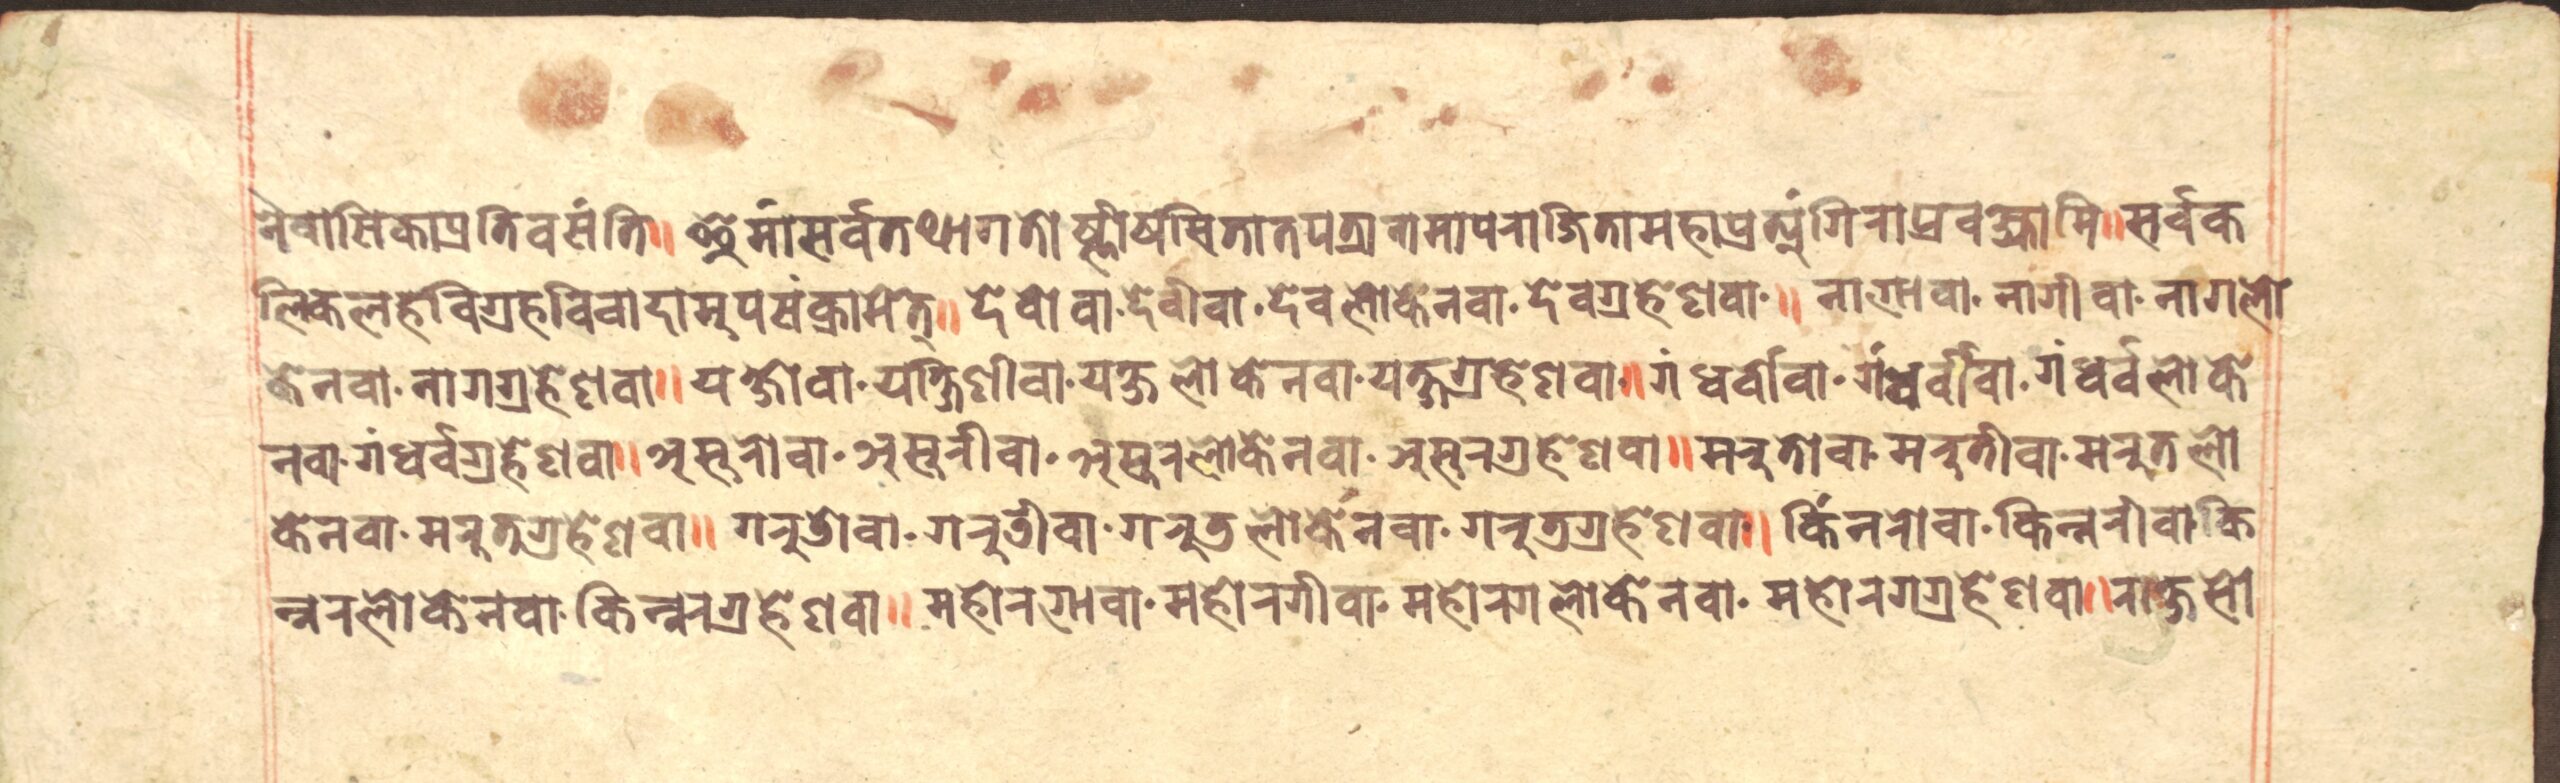 नैवासिकाप्रतिवसंति॥ ॐमांसर्वतथागतोष्णीषसितातपत्रानामापराजितामहाप्रत्यंगिराप्रवक्ष्यामि॥सर्वक
लिकलहविग्रहविवादामुपसंक्रामेत्॥ देवोवा·देवीवा·देवलोकेनवा·देवग्रहेणवा·॥ नागोवा·नागीवा·नागलो
केनवा·नागग्रहेणवा॥यक्षोवा·यक्षिणीवा·यक्षलोकेनवा·यक्षग्रहेणवा·॥गंधर्वोवा·गंधर्वीवा·गंधर्वलोके
नवा·गंधर्वग्रहेणवा॥असुरोवा·असुरीवा·असुरलोकेनवा·असुरग्रहेणवा॥मरुतोवा·मरुतीवा·मरुतलो
केनवा·मरुतग्रहेणवा॥ गरुडोवा·गरुडीवा·गरुडलोकेनवा·गरुडग्रहेणवा·॥ किंनरोवा·किन्नरीवा·कि
न्नरलोकेनवा·किन्नरग्रहेणवा॥ महोरगोवा·महोरगीवा·महोरगलोकेनवा·महोरगग्रहेणवा॥राक्षसो